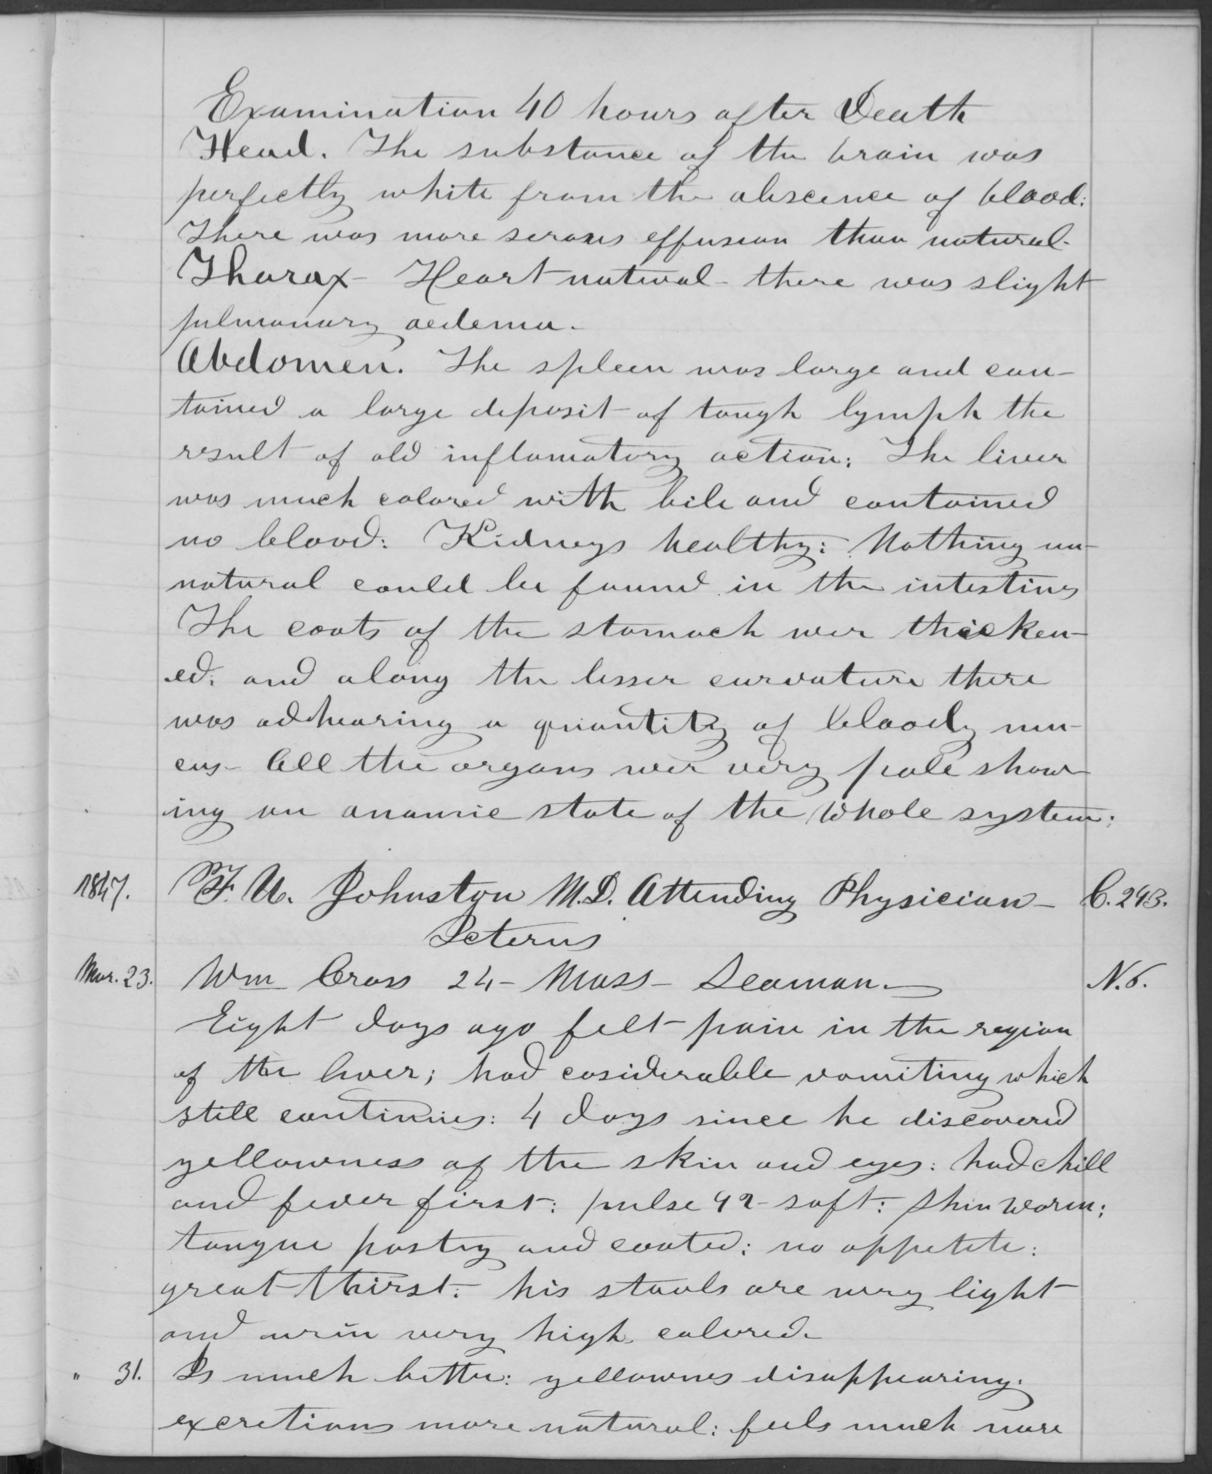 Examination 40 hours after Death
Head. The substance of the brain was
perfectly white from the abscence of blood:
There was more serous effusion than natural-
Thorax- Heart natural- there was slight
pulmonary oedema-
Abdomen. The spleen was large and con-
tained a large deposit of tough lymph the
result of old inflamatory action: The liver
was much colored with bile and contained
no blood: Kidneys healthy: Nothing un-
natural could be found in the intestines
The coats of the stomach wer thicken-
ed. and along the lesser curvature there
was adhearing a quantity of bloody mu-
cus- All the organs wer very pale show-
ing an anamic state of the whole system:
1847. F. U. Johnston M.D. Attending Physician- C. 243.
Icterus
Mar. 23. Wm Cross 24- Mass- Seaman.- N. 6.
Eight days ago felt pain in the region
of the liver; had cosiderable vomiting which
still continues: 4 days since he discovered
yellowness of the skin and eyes: had chill
and fever first: pulse 42- soft: Skin warm:
tongue pasty and coated: no appetite:
great thirst: his stools are very light
and urin very high colored-
" 31. Is much better: yellownes disappearing.
excretions more natural: feels much more